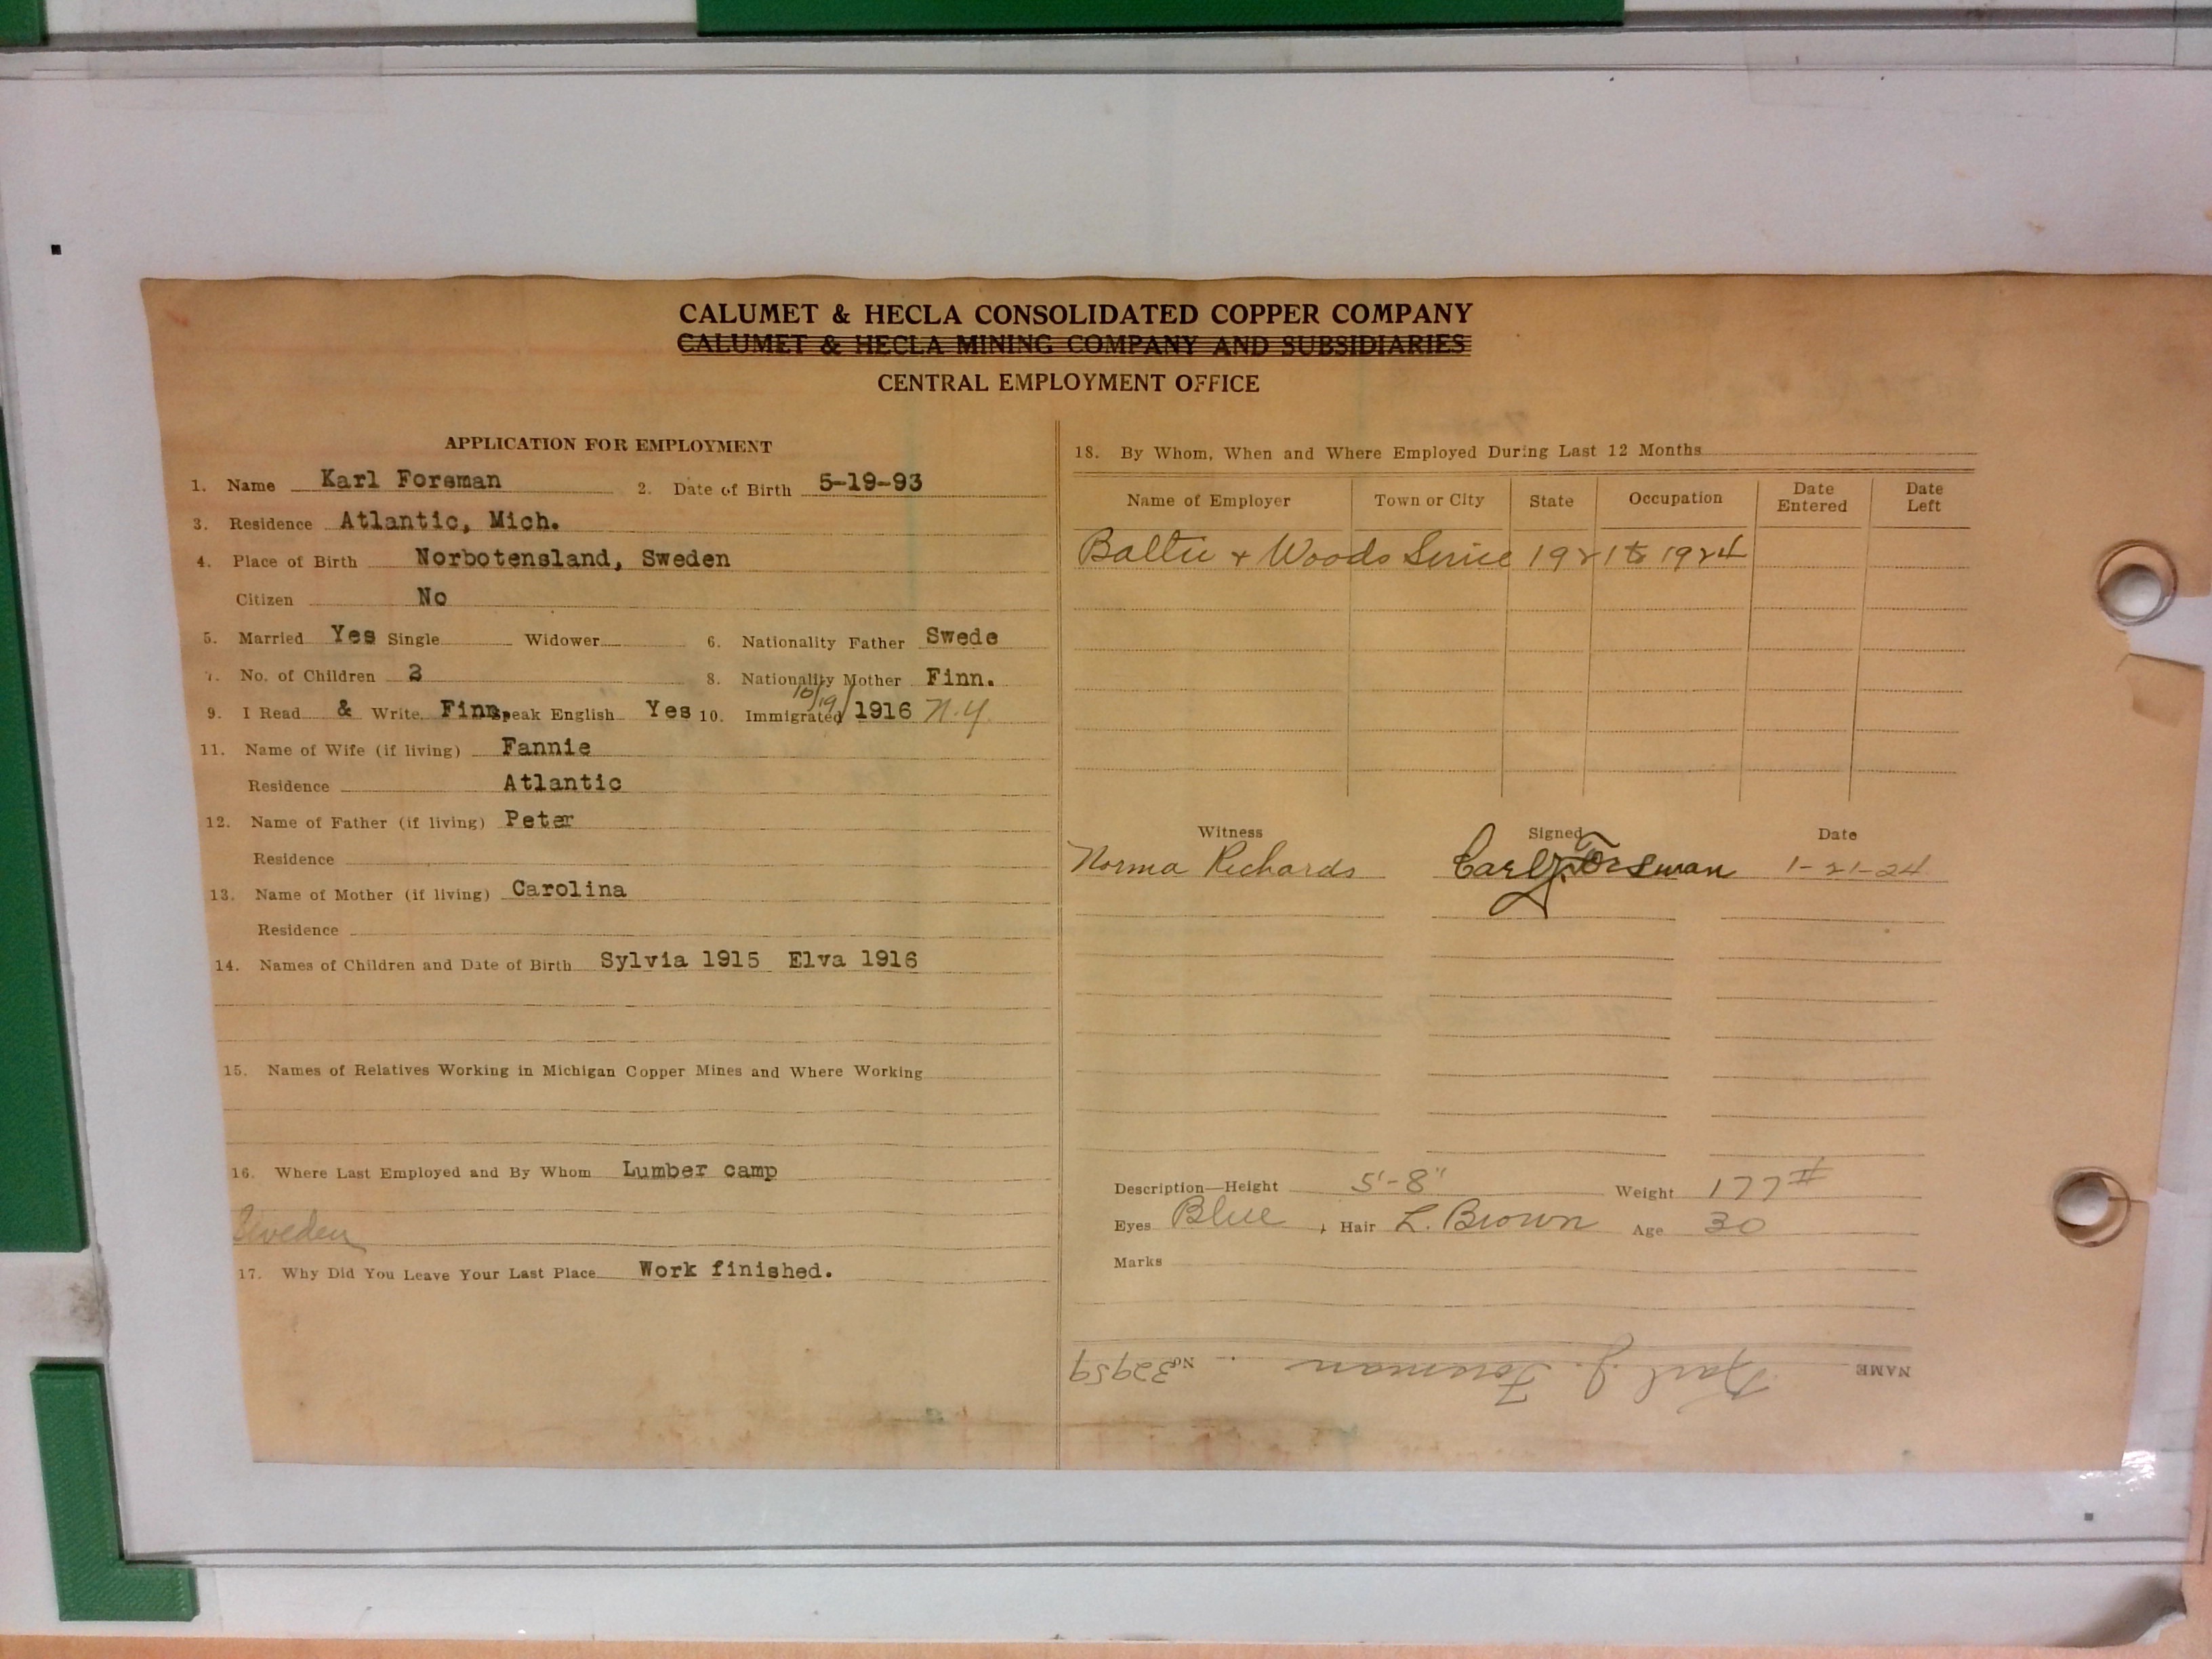 CALUMET & HECLA CONSOLIDATED COPPER COMPANY
CALUMET & HECLA MINING COMPANY AND SUBSIDIARIES
CENTRAL EMPLOYMENT OFFICE
APPLICATION FOR EMPLOYMENT
1. Name Karl Forsman 2. Date of Birth 5-19-93
3. Residence Atlantic, Mich.
4. Place of Birth Norbotensland, Sweden
Citizen No
5. Married Yes Single Widower 6. Nationality Father Swede
7. No. of Children 2 8. Nationality Mother Finn.
10/19/
9. I Read & Write Finn. Speak English Yes 10. Immigrated 1916 N.Y.
11. Name of Wife (if living) Fannie
Residence Atlantic
12. Name of Father (if living) Peter
Residence
13. Name of Mother (if living) Carolina
Residence
14. Names of Children and Date of Birth Sylvia 1915 Elva 1916
15. Names of Relatives Working in Michigan Copper Mines and Where Working
16. Where Last Employed and By Whom Lumber camp
Sweden
17. Why Did You Leave Your Last Place Work finished.
18. By Whom, When and Where Employed During Last 12 Months
Name of Employer Town or City State Occupation Date Entered Date Left
Baltic + Woods Since 1921 to 1924
Witness Signed Date
Norma Richards Carl J. Forsman 1-21-24
Description—Height 5'-8" Weight 177#
Eyes Blue, Hair L. Brown Age 30
Marks
NAME Karl J. Forsman No. 32959